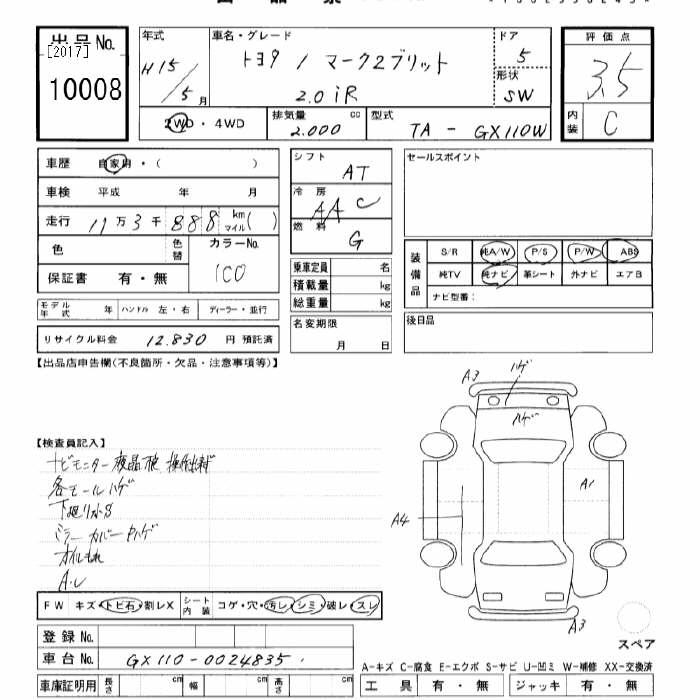 出品No.
[2017]
10008
年式 H15/5月
車名・グレード トヨタ / マーク2ブリット
2.0iR
ドア 5
形状 SW
評価点 3.5
内装 C
2WD・4WD
排気量 2.000 cc
型式 TA - GX110W
車歴 自家用・( )
車検 平成 年 月
走行 11万3千888 km マイル ( )
色 色替 カラーNo. 1C0
保証書 有・無
シフト AT
冷房 AAC
燃料 G
乗車定員 名
積載量 kg
総重量 kg
セールスポイント
装備品 S/R 純A/W P/S P/W ABS
純TV 純ナビ 革シート 外ナビ エアB
ナビ型番:
モデル年式 年 ハンドル 左・右 ディーラー・並行
リサイクル料金 12.830 円 預託済
名変期限 月 日
後日品
【出品店申告欄(不良箇所・欠品・注意事項等)】
A3 ハゲ
ハゲ
【検査員記入】
ナビモニター液晶
各モールハゲ
ミラーカバー
オイルもれ
A.U
A1
A4
A3
FW キズ・トビ石・割レX シート内装 コゲ・穴・汚レ・シミ・破レ・スレ
登録No.
車台No. GX110-0024835
車庫証明用 長さ cm 幅 cm 高さ cm
スペア
A-キズ C-腐食 E-エクボ S-サビ U-凹ミ W-補修 XX-交換済
工具 有・無 ジャッキ 有・無